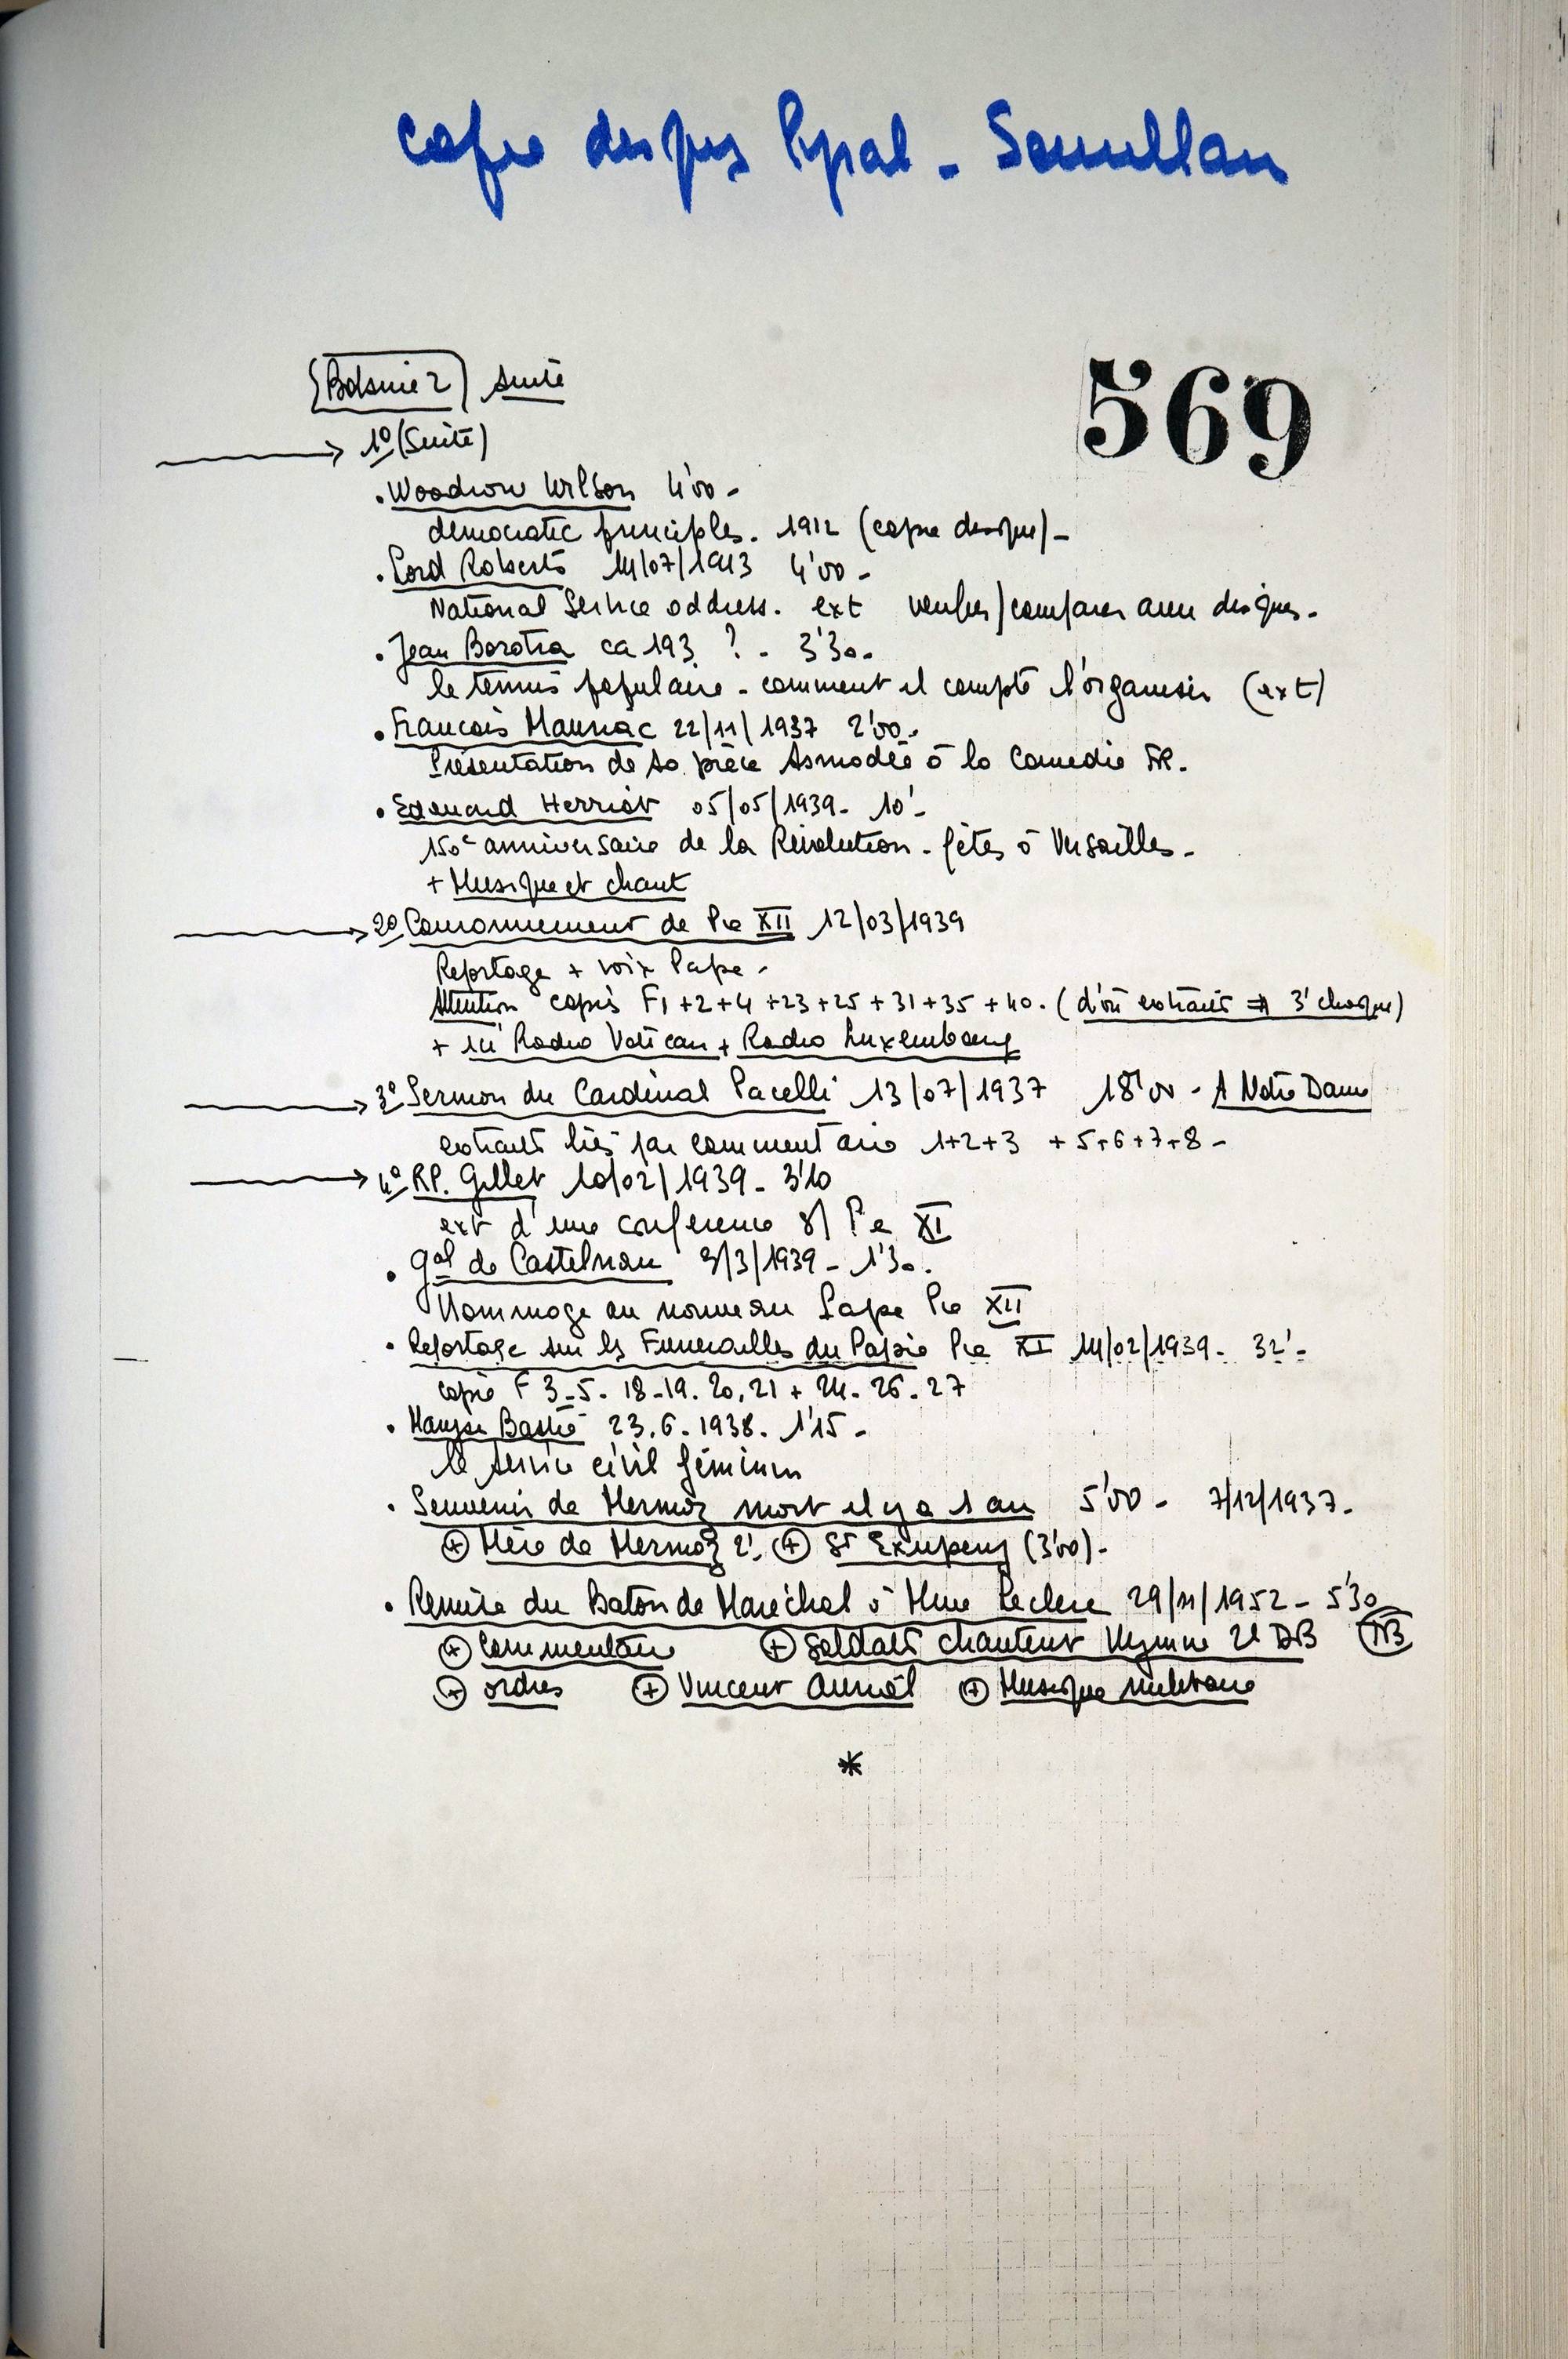 copie disques Pypal - Soumillan
569
Bobine 2 suite
1º (Suite)
. Woodrow Wilson 4'00 -
democratic principles. 1912 (copie disque) -
. Lord Roberts 14/07/1913 4'00 -
National Service address. ext verifier/comparer avec disques.
. Jean Borotra ca 193 ? - 3'30.
le tennis populaire - comment il compte l'organiser (ext)
. Francois Mauriac 22/11/1937 2'00.
Présentation de sa pièce Asmodée à la Comedie FR.
. Edouard Herriot 05/05/1939 - 10' -
150e anniversaire de la Révolution - fêtes à Versailles -
+ Musique et chant
2º Couronnement de Pie XII 12/03/1939
Reportage + voix Pape -
Attention copié F1 + 2 + 4 + 23 + 25 + 31 + 35 + 40. (d'où extraits => 3' chaque)
+ Radio Vatican + Radio Luxembourg
3º Sermon du Cardinal Pacelli 13/07/1937 18'00 - A Notre Dame
extraits liés par commentaire 1+2+3 + 5+6+7+8 -
4º RP. Gillet 10/02/1939 - 3'10
ext d'une conference s/ Pie XI
. Gal de Castelnau 3/3/1939 - 1'30.
Hommage au nouveau Pape Pie XII
. Reportage sur les Funerailles du Pape Pie XI 14/02/1939 - 32' -
copié F 3 - 5 - 18 - 19. 20, 21 + 24 - 26 - 27
. Maryse Bastié 23.6.1938. 1'15 -
le service civil féminin
. Souvenir de Mermoz mort il y a 1 an 5'00 - 7/12/1937.
+ Mère de Mermoz 2'. + St Exupery (3'00) -
. Remise du Baton de Maréchal à Mme Leclerc 29/11/1952 - 5'30
+ Commentaire + Soldats chantent Hymne 2e DB NB
+ ordres + Vincent Auriol + Musique militaire
*